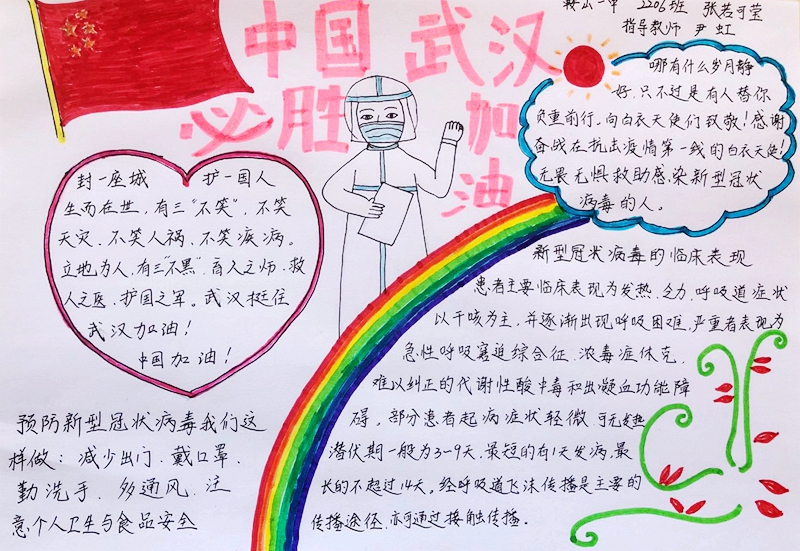 鞍山一中 2206班 张若可莹
指导教师 尹虹
中国 武汉
必胜 加
油
哪有什么岁月静
好,只不过是有人替你
负重前行。向白衣天使们致敬!感谢
奋战在抗击疫情第一线的白衣天使!
无畏无惧救助感染新型冠状
病毒的人。
封一座城 护一国人
生而在世,有三“不笑”,不笑
天灾、不笑人祸、不笑疾病。
立地为人,有三“不黑”,育人之师、救
人之医、护国之军。武汉挺住
武汉加油!
中国加油!
新型冠状病毒的临床表现
患者主要临床表现为发热、乏力,呼吸道症状
以干咳为主,并逐渐出现呼吸困难,严重者表现为
急性呼吸窘迫综合征、浓毒症休克、
难以纠正的代谢性酸中毒和出凝血功能障
碍。部分患者起病症状轻微,可无发热
潜伏期一般为3~9天,最短的有1天发病,最
长的不超过14天。经呼吸道飞沫传播是主要的
传播途径,亦可通过接触传播。
预防新型冠状病毒我们这
样做:减少出门、戴口罩、
勤洗手、多通风、注
意个人卫生与食品安全